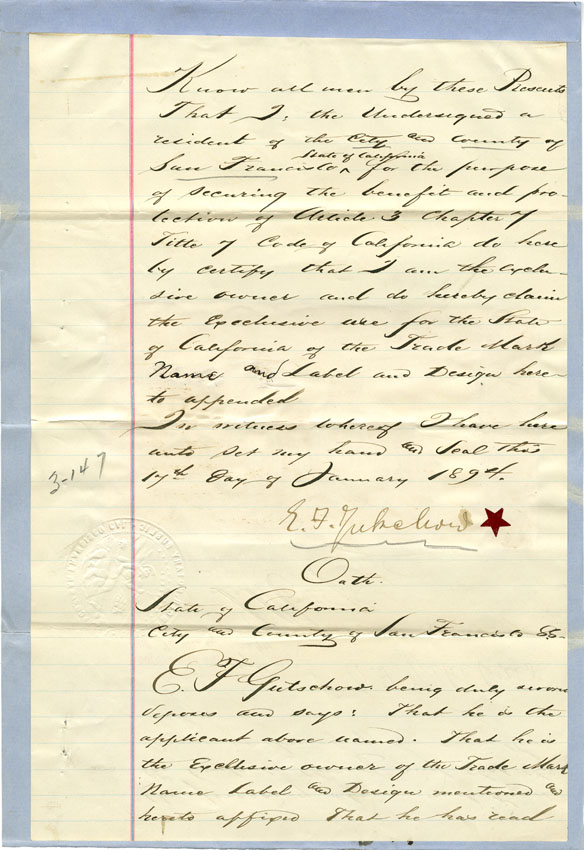 Know all men by these Presents
That I, the Undersigned a
resident of the City and County of
State of California
San Francisco ^ for the purpose
of securing the benefit and pro-
tection of Article 3 Chapter 7
Title 7 Code of California do here
by certify that I am the exclu-
sive owner and do hereby claim
the Exclusive use for the State
of California of the Trade Mark
Name and Label and Design here-
to appended
In witness whereof I have here
unto set my hand and Seal this
17th Day of January 1894.
3-147
E. F. Gutschow
Oath.
State of California
City and County of San Francisco SS.
E. F. Gutschow being duly sworn
deposes and says: That he is the
applicant above named. That he is
the Exclusive owner of the Trade Mark
Name Label and Design mentioned and
hereto affixed That he has read